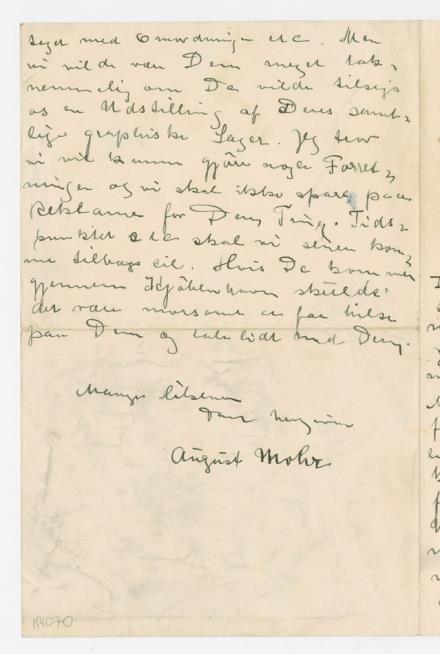 taget med Omordninger etc. Men
vi vilde være Dem meget tak-
nemmelig om De vilde tilsige
os en Udstilling af Deres samt-
lige graphiske Sager. Jeg tror
vi vil kunne gjøre noget Forret-
ninger og vi skal ikke spare paa
Reklamen for Deres Ting. Tids-
punktet etc skal vi senere kom-
me tilbage til. Hvis De kommer
gjennem Kjøbenhavn skulde
det være morsomt at faa hilse
paa Dem og tale lidt med Dem.
Mange hilsener
Deres hengivne
August Mohr
K4070